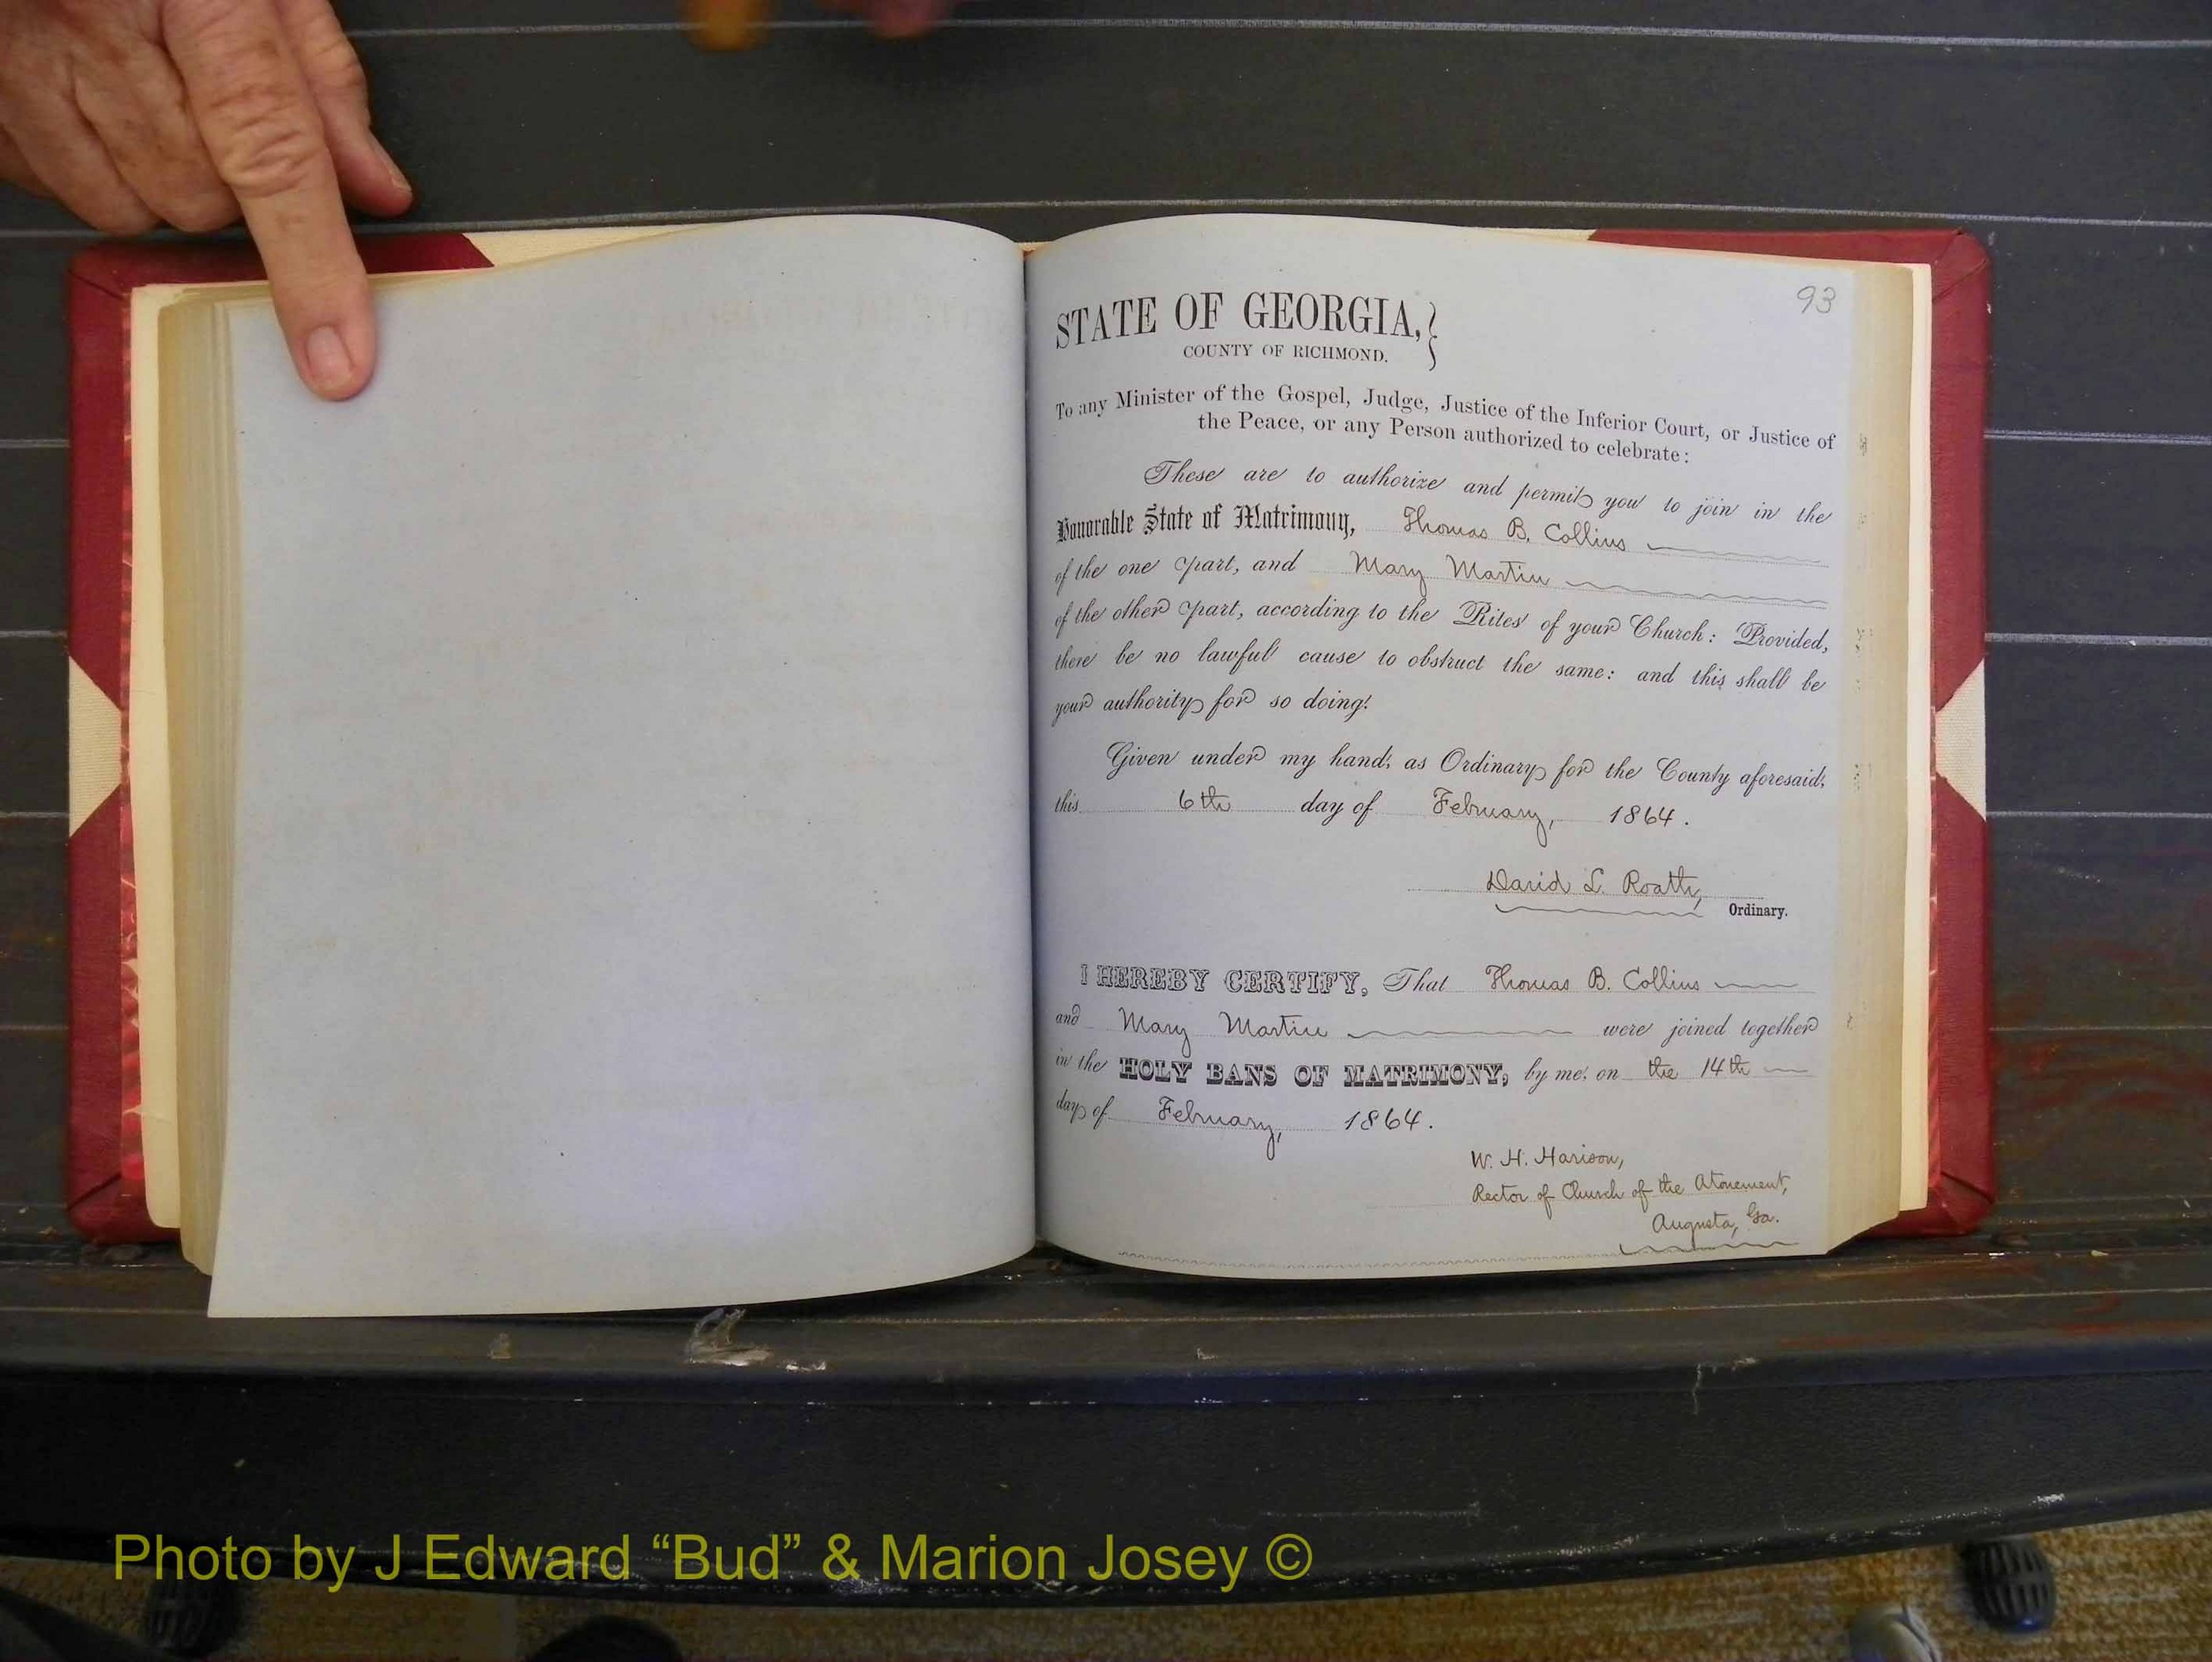 93
STATE OF GEORGIA,
COUNTY OF RICHMOND.
To any Minister of the Gospel, Judge, Justice of the Inferior Court, or Justice of
the Peace, or any Person authorized to celebrate:
These are to authorize and permit you to join in the
Honorable State of Matrimony, Thomas B. Collins
of the one part, and Mary Martin
of the other part, according to the Rites of your Church: Provided,
there be no lawful cause to obstruct the same: and this shall be
your authority for so doing.
Given under my hand, as Ordinary for the County aforesaid,
this 6th day of February, 1864.
David L. Roath,
Ordinary.
I HEREBY CERTIFY, That Thomas B. Collins
and Mary Martin were joined together
in the HOLY BANS OF MATRIMONY, by me, on the 14th
day of February, 1864.
W. H. Harison,
Rector of Church of the Atonement,
Augusta, Ga.
Photo by J Edward “Bud” & Marion Josey ©